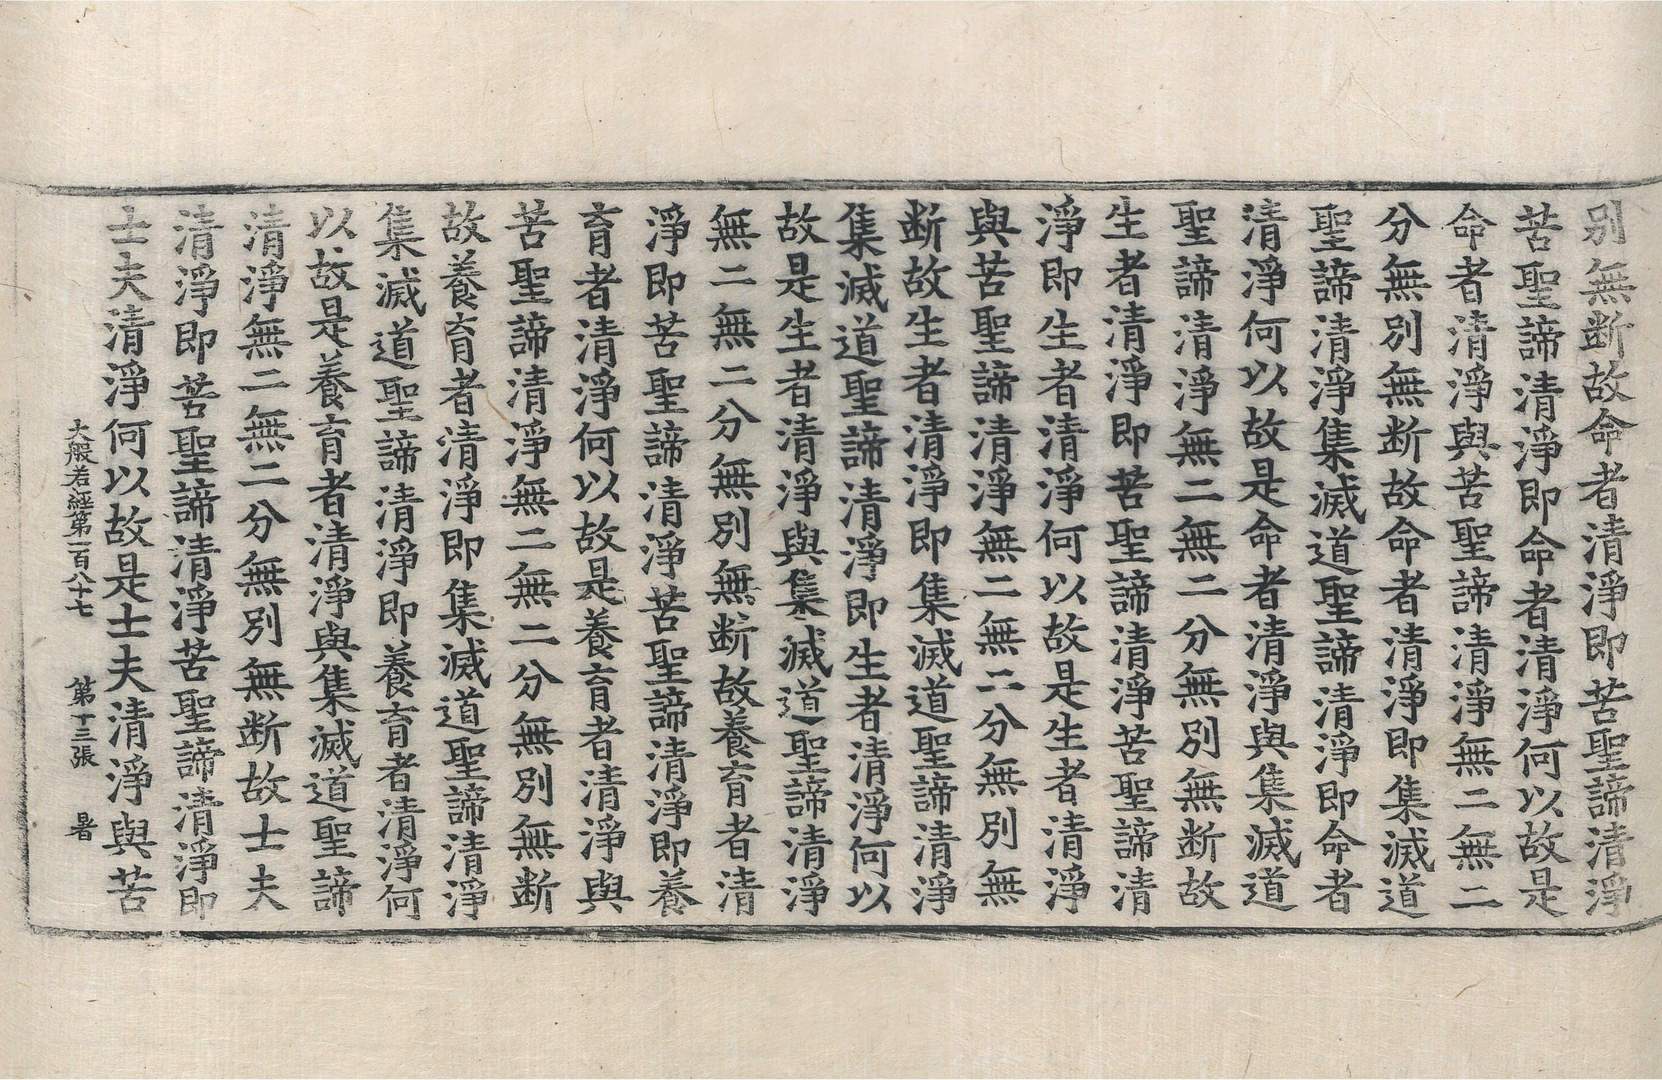 別無断故命者清淨即苦聖諦清淨
苦聖諦清淨即命者清淨何以故是
命者清淨與苦聖諦清淨無二無二
分無別無断故命者清淨即集滅道
聖諦清淨集滅道聖諦清淨即命者
清淨何以故是命者清淨與集滅道
聖諦清淨無二無二分無別無断故
生者清淨即苦聖諦清淨苦聖諦清
淨即生者清淨何以故是生者清淨
與苦聖諦清淨無二無二分無別無
断故生者清淨即集滅道聖諦清淨
集滅道聖諦清淨即生者清淨何以
故是生者清淨與集滅道聖諦清淨
無二無二分無別無断故養育者清
淨即苦聖諦清淨苦聖諦清淨即養
育者清淨何以故是養育者清淨與
苦聖諦清淨無二無二分無別無断
故養育者清淨即集滅道聖諦清淨
集滅道聖諦清淨即養育者清淨何
以故是養育者清淨與集滅道聖諦
清淨無二無二分無別無断故士夫
清淨即苦聖諦清淨苦聖諦清淨即
士夫清淨何以故是士夫清淨與苦
大般若經第一百八十七 第十三張 暑